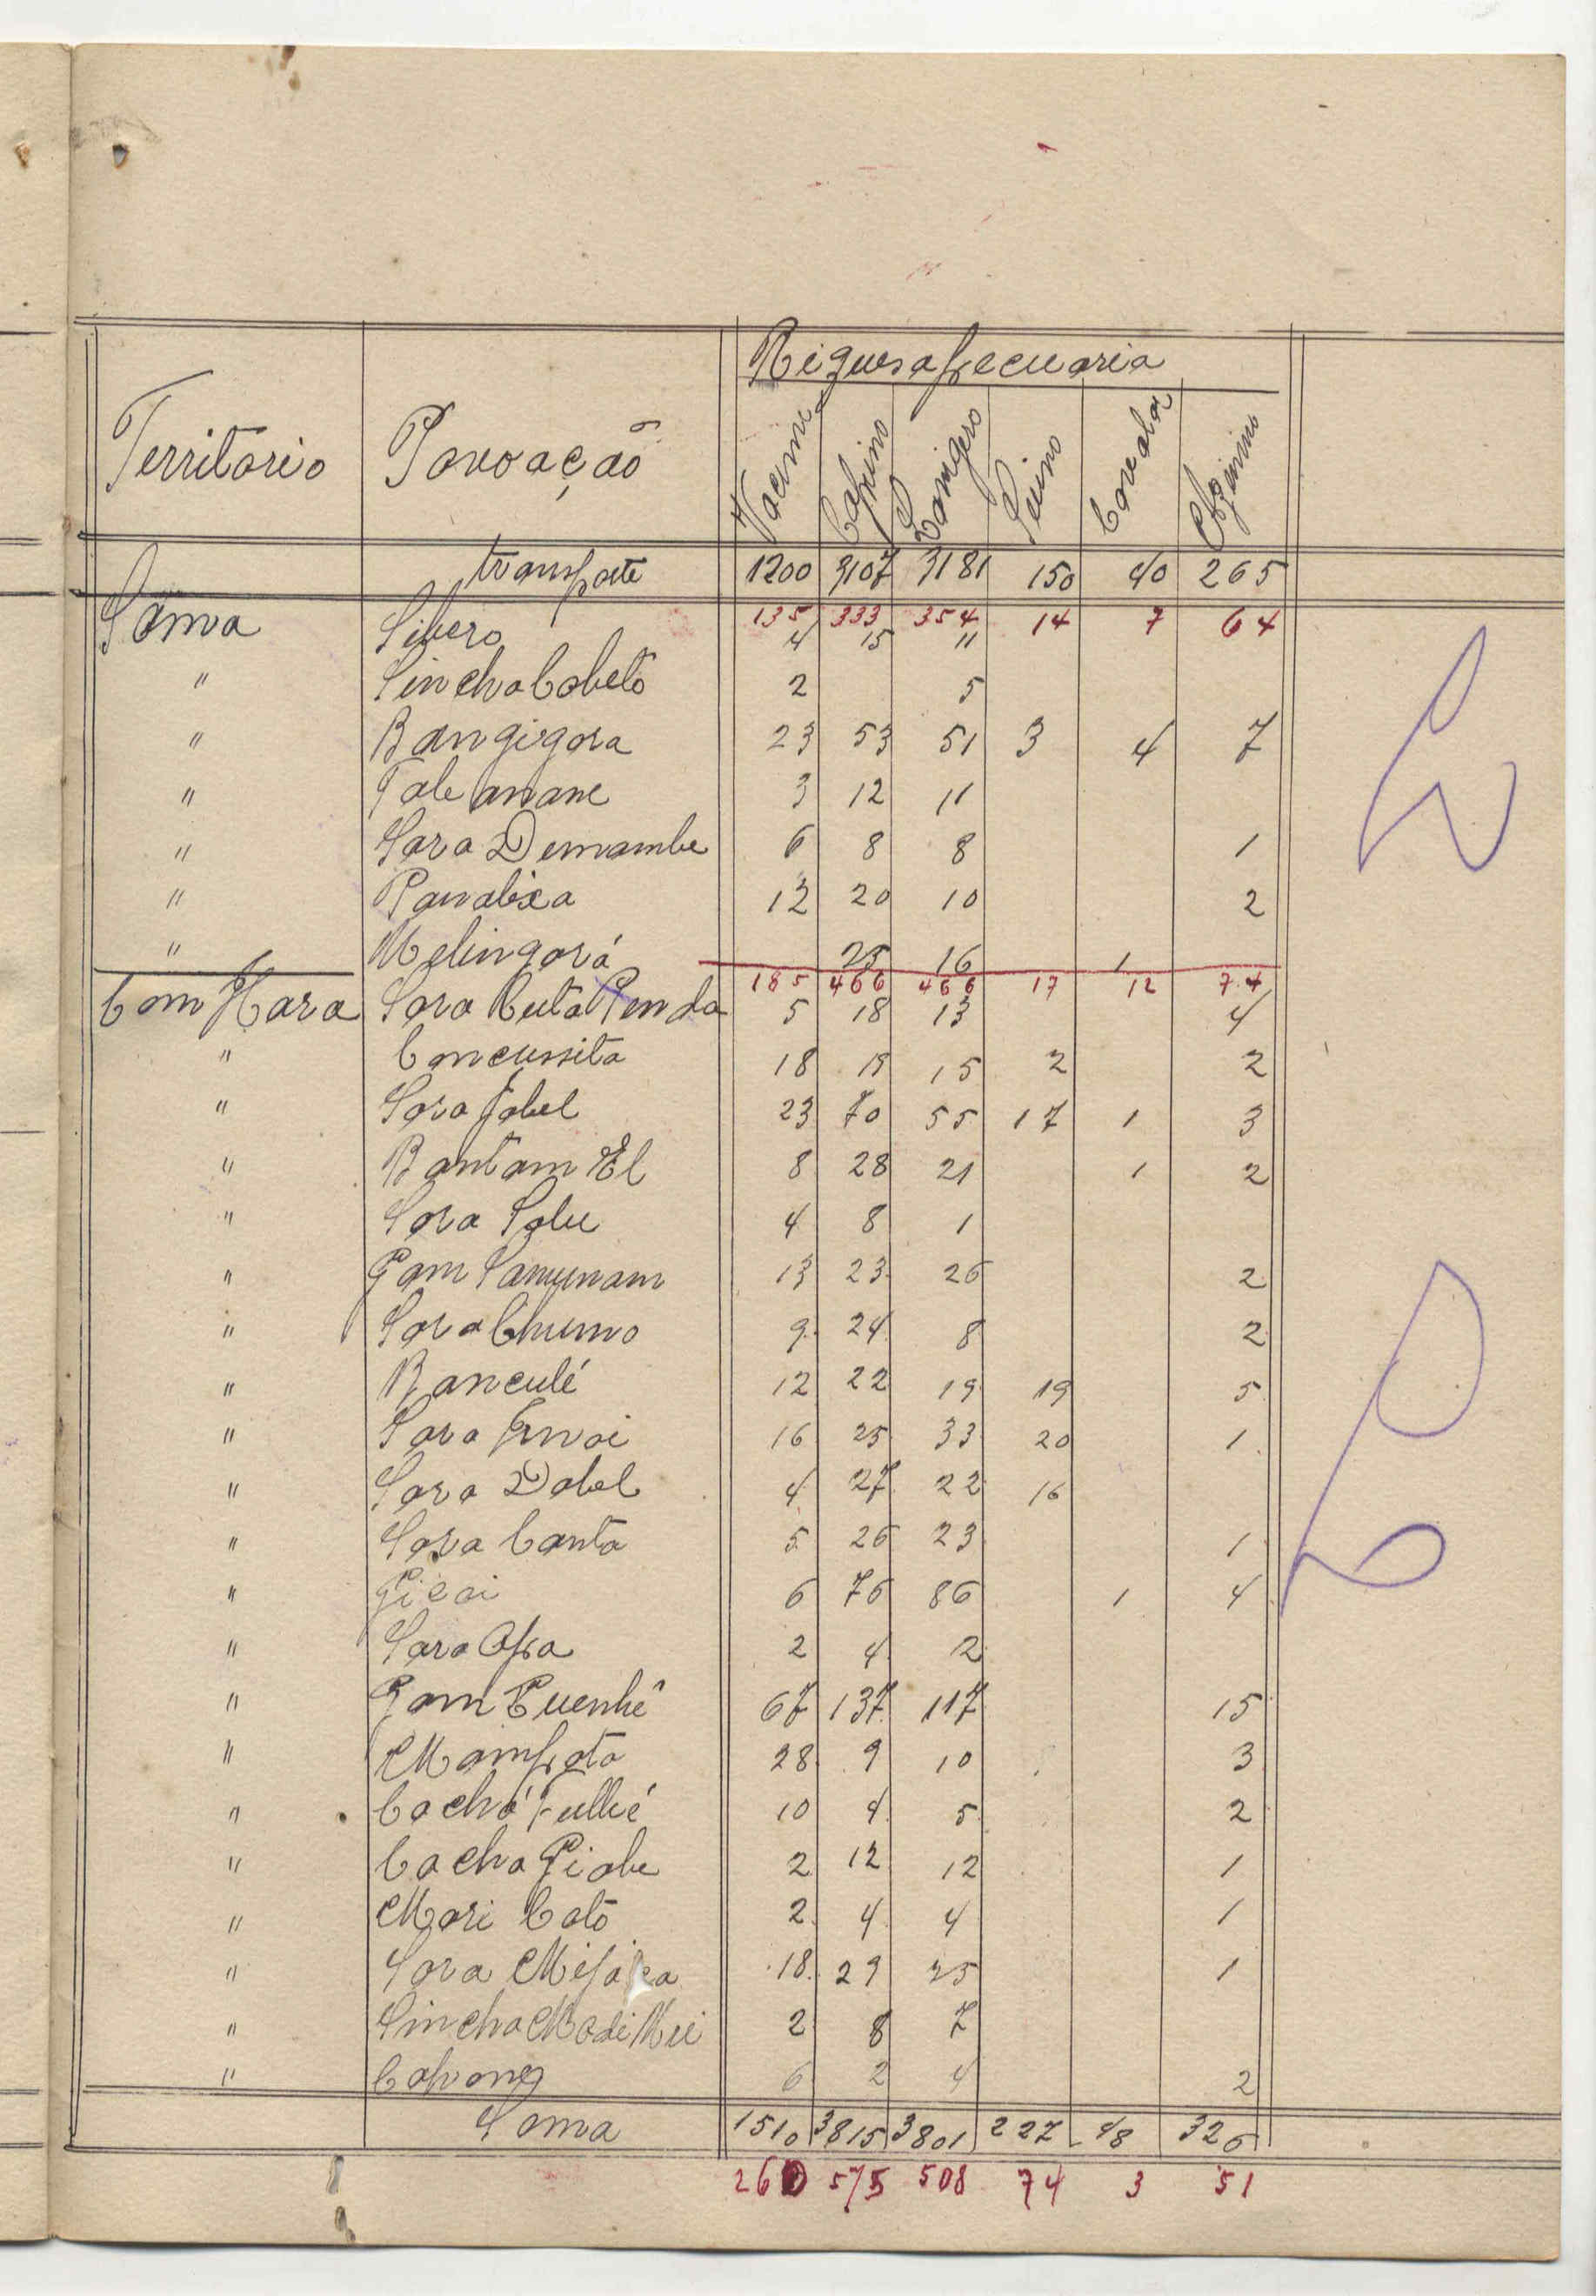 Riquesa pecuaria
Territorio Povoação Vacum Caprino Lanigero Suino Cavalar Azinino
transporte 1200 3107 3181 150 40 265
135 333 354 14 7 64
Sama Sibero 4 15 11
" Sincha Cobeto 2 5
" Bangigora 23 53 51 3 4 7
" Tabanane 3 12 11
" Sara Demambe 6 8 8 1
" Panabixa 12 20 10 2
" Melingará 25 16 1
185 466 466 17 12 74
Com Hara Sara Cuta Penda 5 18 13 4
" Concussita 18 19 15 2 2
" Sara Jabel 23 70 55 17 1 3
" Bantam El 8 28 21 1 2
" Sara Salu 4 8 1
" Gam Samunam 13 23 26 2
" Sara Chumo 9 24 8 2
" Banculé 12 22 19 19 5
" Sara 16 25 33 20 1
" Sara Dabel 4 27 22 16
" Sara Canta 5 26 23 1
" 6 76 86 1 4
" Sara 2 4 2
" Gam Cuenhê 67 137 117 15
" Mampata 28 9 10 3
" Cachá Fullié 10 4 5 2
" Cacha Giabe 2 12 12 1
" Mari Cató 2 4 4 1
" Sara 18 29 25 1
" Sincha Madi 2 8 7
" 6 2 4 2
Soma 1510 3815 3801 227 48 326
260 575 508 74 3 51